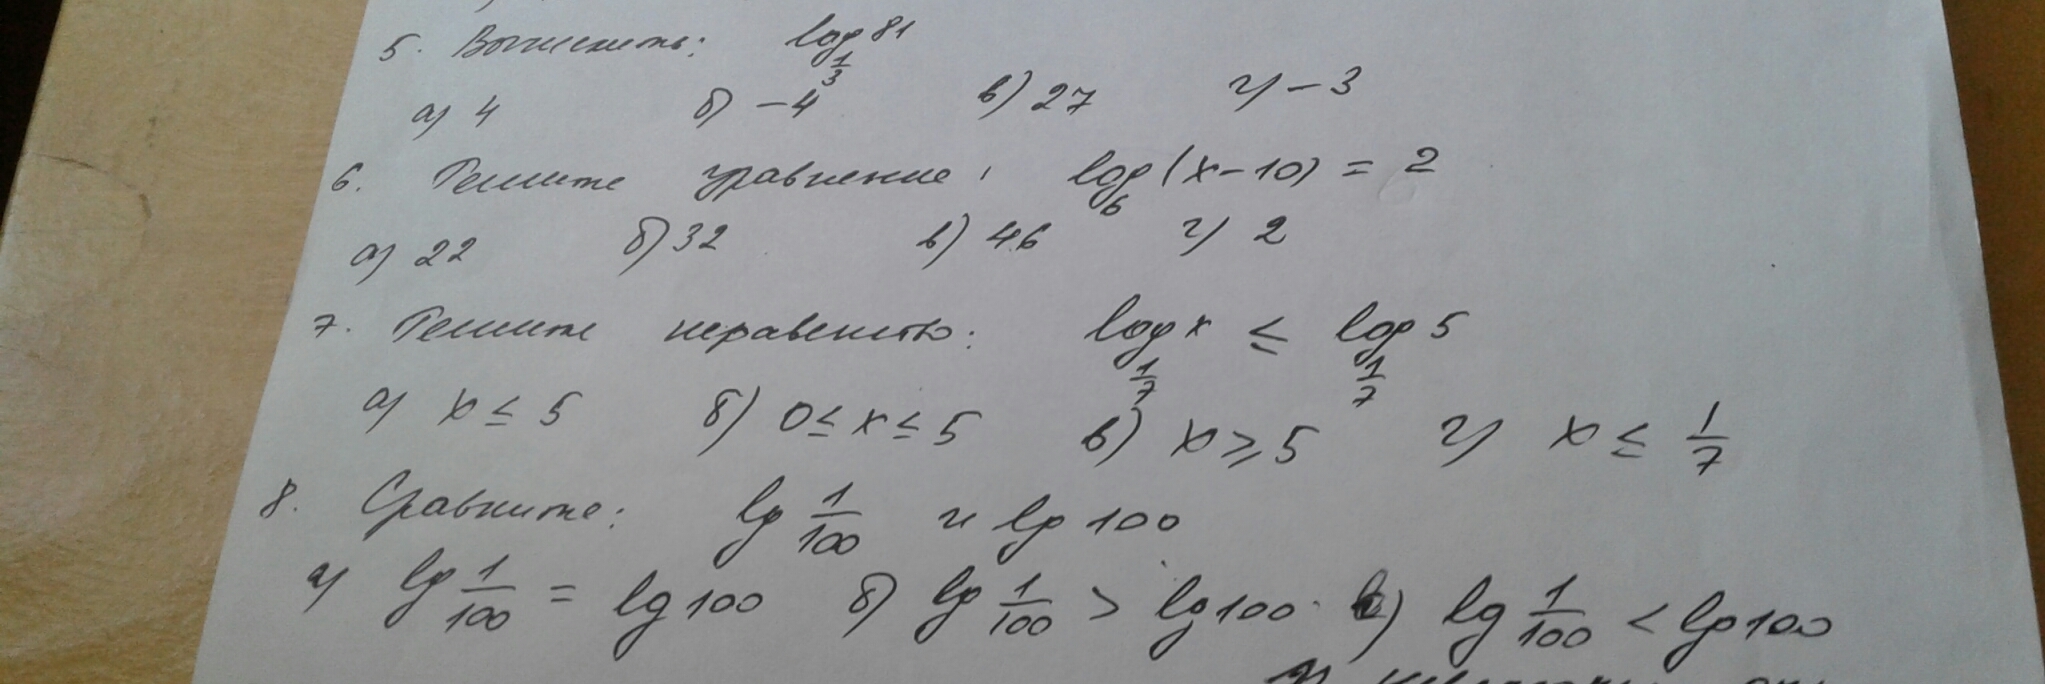 5. Вычислить: log_{1/3} 81
а) 4 б) -4 в) 27 г) -3
6. Решите уравнение: log_6 (x-10) = 2
а) 22 б) 32 в) 46 г) 2
7. Решите неравенство: log_{1/7} x ≤ log_{1/7} 5
а) x ≤ 5 б) 0 ≤ x ≤ 5 в) x ≥ 5 г) x ≤ 1/7
8. Сравните: lg 1/100 и lg 100
а) lg 1/100 = lg 100 б) lg 1/100 > lg 100 в) lg 1/100 < lg 100